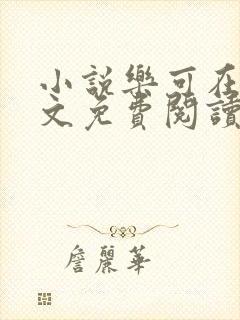 小說樂可在
文免費閱讀
詹麗華